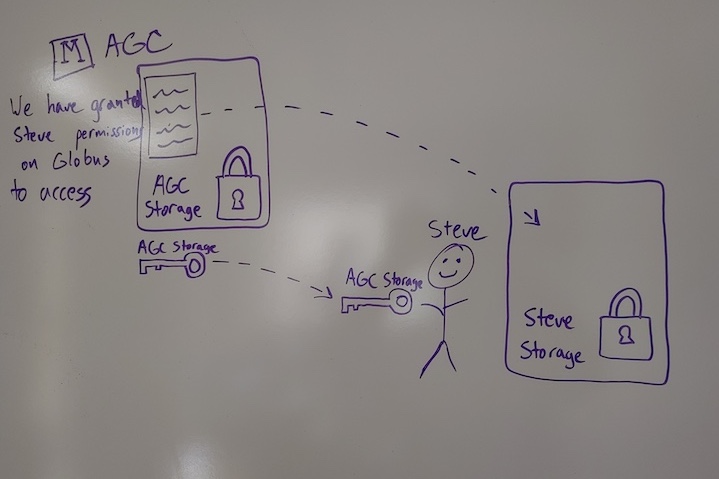 M AGC
We have granted
Steve permissions
on Globus
to access
AGC
Storage
AGC Storage
AGC Storage
Steve
Steve
Storage